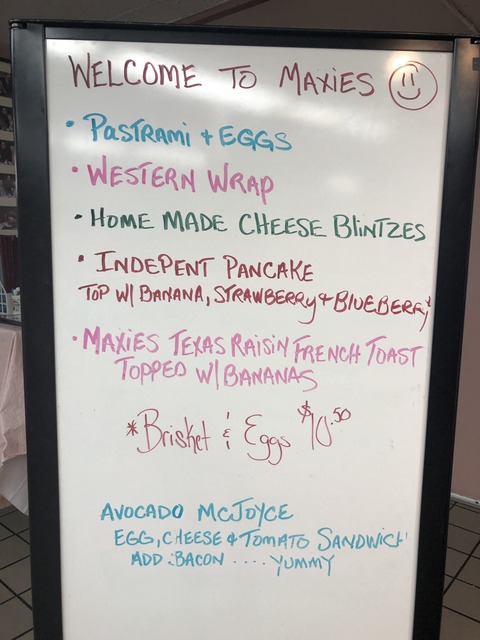 WELCOME TO MAXIES
• PASTRAMI + EGGS
• WESTERN WRAP
• HOME MADE CHEESE BLINTZES
• INDEPENT PANCAKE
TOP W/ BANANA, STRAWBERRY & BLUEBERRY
• MAXIES TEXAS RAISIN FRENCH TOAST
TOPPED W/ BANANAS
*Brisket & Eggs $10.50
AVOCADO MCJOYCE
EGG, CHEESE & TOMATO SANDWICH
ADD: BACON .... YUMMY